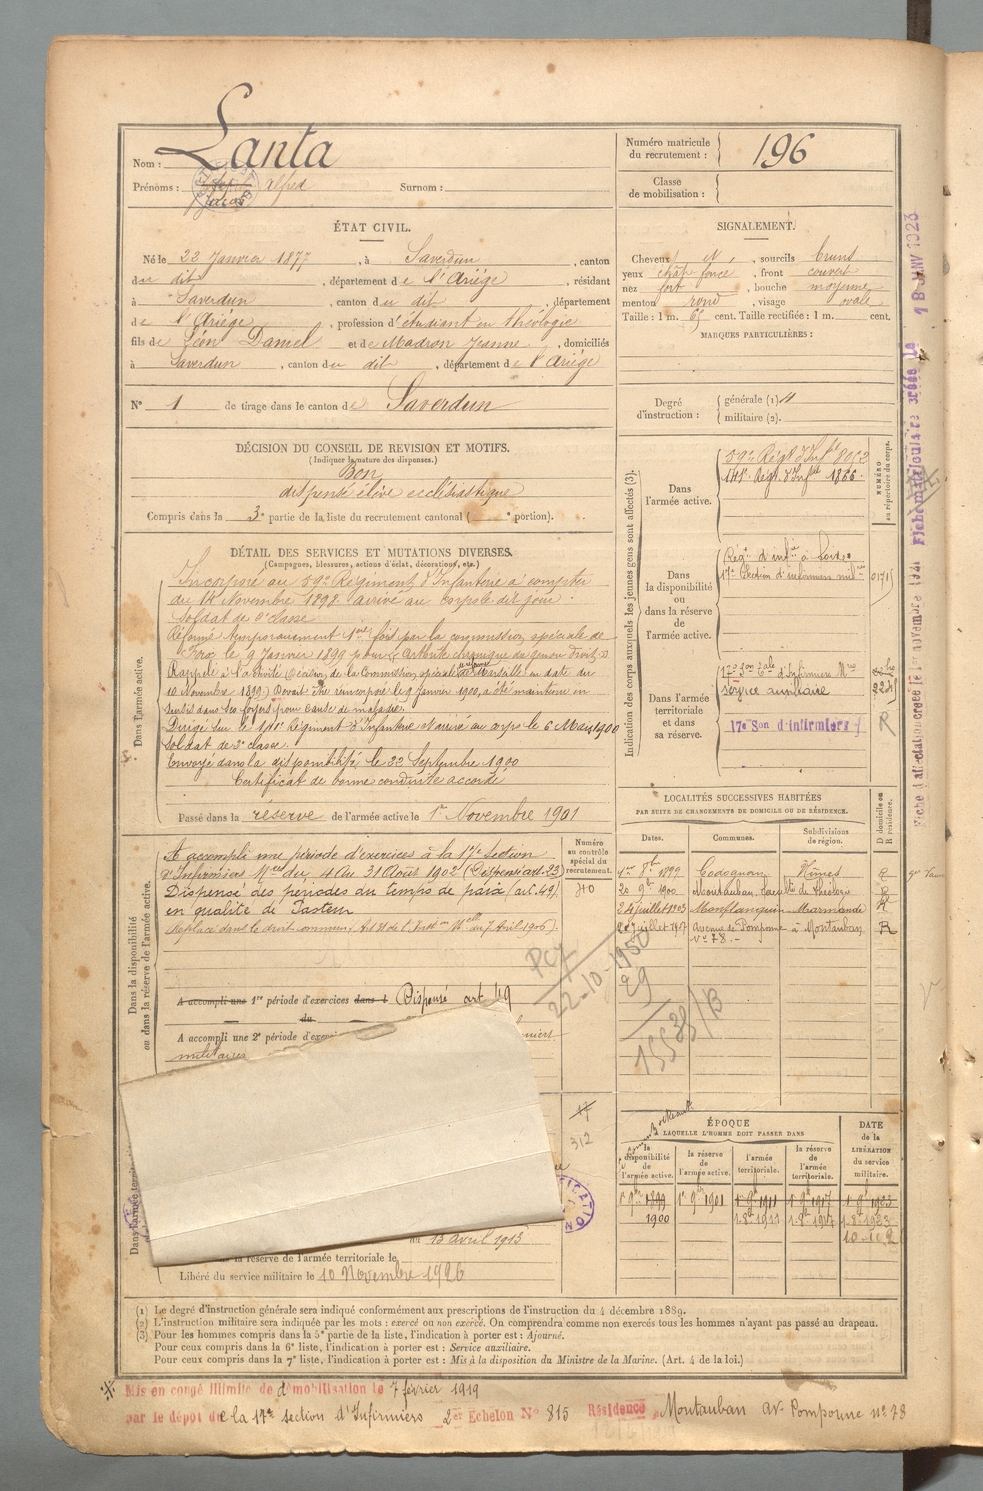 Nom : Lanta
Prénoms : alfred Surnom :
Numéro matricule du recrutement : 196
Classe de mobilisation :
ÉTAT CIVIL.
Né le 22 Janvier 1877, à Saverdun, canton
du dit, département de l'Ariège, résidant
à Saverdun, canton du dit, département
de l'Ariège, profession d'étudiant en théologie
fils de Léon Daniel et de Madron Jeanne, domiciliés
à Saverdun, canton du dit, département de l'Ariège
N° 1 de tirage dans le canton de Saverdun
SIGNALEMENT.
Cheveux N, sourcils bruns
yeux chât. foncé, front couvert
nez fort, bouche moyenne
menton rond, visage ovale
Taille : 1 m. 65 cent. Taille rectifiée : 1 m. cent.
MARQUES PARTICULIÈRES :
Degré d'instruction : générale (1)
militaire (2).
DÉCISION DU CONSEIL DE REVISION ET MOTIFS.
(Indiquer la nature des dispenses.)
Bon
dispensé élève ecclésiastique
Compris dans la 3e partie de la liste du recrutement cantonal ( e portion).
DÉTAIL DES SERVICES ET MUTATIONS DIVERSES.
(Campagnes, blessures, actions d'éclat, décorations, etc.)
Dans l'armée active.
Incorporé au 59e Régiment d'Infanterie à compter
du 14 Novembre 1898. arrivé au corps le dit jour.
Soldat de 2e classe
Réformé temporairement 1ère fois par la commission spéciale de
Foix le 9 Janvier 1899 pour arthrite chronique du genou droit.
Rappelé à l'activité (décision de la Commission spéciale de Marseille en date du
10 Novembre 1899). Devait être réincorporé le 9 Janvier 1900, a été maintenu en
sursis dans ses foyers pour cause de maladie.
Dirigé sur le 141e Régiment d'Infanterie et arrivé au corps le 6 Mars 1900
Soldat de 2e classe.
Envoyé dans la disponibilité le 22 Septembre 1900
Certificat de bonne conduite accordé
Passé dans la réserve de l'armée active le 1er Novembre 1901
Indication des corps auxquels les jeunes gens sont affectés (3).
NUMÉRO au répertoire du corps.
Dans l'armée active.
59e Régt d'Infie 8053
141e Régt d'Infie 1866.
Dans la disponibilité ou dans la réserve de l'armée active.
Régt d'infie à
17e Section d'infirmiers milres
Dans l'armée territoriale et dans sa réserve.
17e Son d'Infirmiers
service auxiliaire
17e Son d'infirmiers
R
Dans la disponibilité ou dans la réserve de l'armée active.
A accompli une période d'exercices à la 17e Section
d'Infirmiers Mres du 4 au 31 Août 1902 (Dispensé art. 23)
Dispensé des périodes du temps de paix (art. 49)
en qualité de Pasteur
Replacé dans le droit commun,
A accompli une 1re période d'exercices dans l Dispensé art 49
du
A accompli une 2e période
militaires
Numéro au contrôle spécial du recrutement.
LOCALITÉS SUCCESSIVES HABITÉES
PAR SUITE DE CHANGEMENTS DE DOMICILE OU DE RÉSIDENCE.
Dates. Communes. Subdivisions de région. D domicile ou R résidence.
1er 8bre 1899 Codognan Nîmes R
20 9bre 1900 Montauban, faculté de théologie R
24 juillet 1903 Monflanquin Marmande R
juillet 1917 Avenue de Pomponne à Montauban R
N° 78. -
PC7
22-10-1950
29
15538/B
17
312
ÉPOQUE
À LAQUELLE L'HOMME DOIT PASSER DANS
la disponibilité de l'armée active.
la réserve de l'armée active.
l'armée territoriale.
la réserve de l'armée territoriale.
DATE de la LIBÉRATION du service militaire.
1er 9bre 1899 1er 9bre 1901 1er 9bre 1911 1er 9bre 1917 1er 9bre 1923
1900 1.8bre 1911 1.8bre 1917 1.8bre 1923
Dans l'armée territoriale
du 13 avril 1913
la réserve de l'armée territoriale le
Libéré du service militaire le 10 Novembre 1926
(1) Le degré d'instruction générale sera indiqué conformément aux prescriptions de l'instruction du 4 décembre 1889.
(2) L'instruction militaire sera indiquée par les mots : exercé ou non exercé. On comprendra comme non exercés tous les hommes n'ayant pas passé au drapeau.
(3) Pour les hommes compris dans la 5e partie de la liste, l'indication à porter est : Ajourné.
Pour ceux compris dans la 6e liste, l'indication à porter est : Service auxiliaire.
Pour ceux compris dans la 7e liste, l'indication à porter est : Mis à la disposition du Ministre de la Marine. (Art. 4 de la loi.)
Mis en congé illimité de démobilisation le 7 février 1919
par le dépôt de la 17e section d'Infirmiers 2e Echelon N° 815 Résidence Montauban av. Pomponne n° 78
Fiche d'affectation créée le 1er novembre 1921 Fiche matriculaire créée le 18 JANV 1923